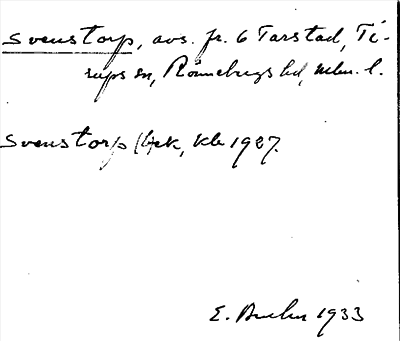 Svenstorp, avs. fr. 6 Tarstad, Ti-
rups sn, Rönnebergs hd, Mlm. l.
Svenstorp (4) ek, kb 1927.
E. 1933